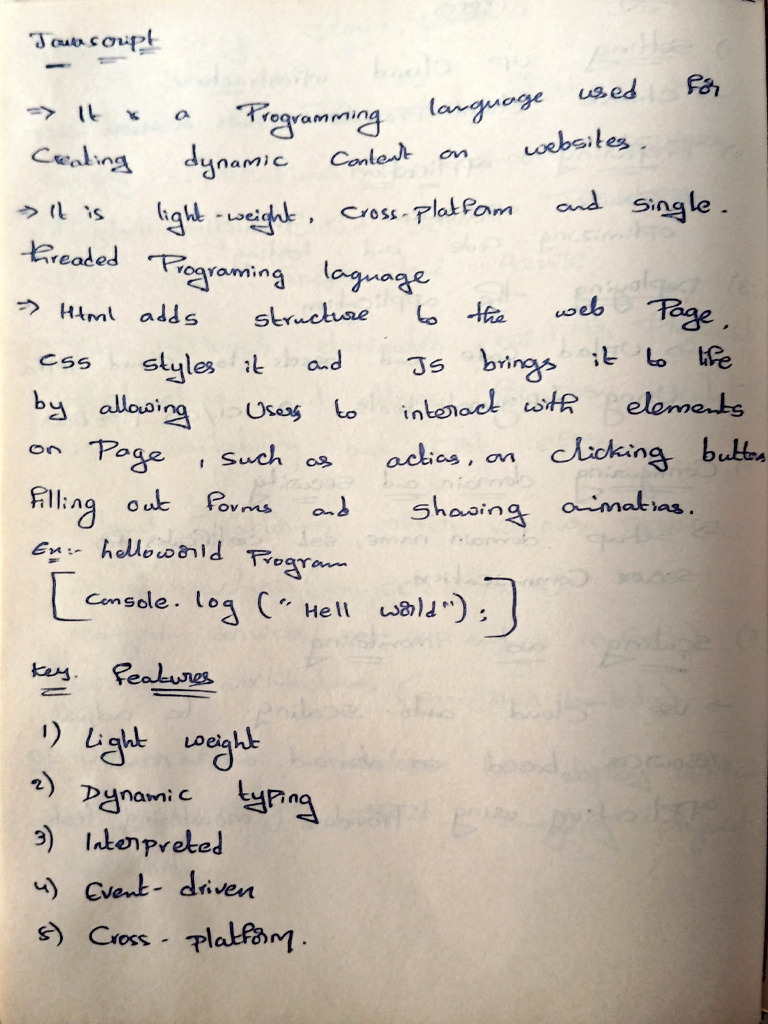 Javascript
=> It is a Programming language used for
Creating dynamic Content on websites.
=> It is light-weight, cross-platform and single-
threaded Programing laguage
=> Html adds structure to the web Page,
css styles it and JS brings it to life
by allowing Users to interact with elements
on Page, such as actias, on clicking button
filling out forms and showing aimatias.
Ex:- helloworld Program
[console.log ("Hell world");]
Key. Features
1) Light weight
2) Dynamic typing
3) Interpreted
4) Event-driven
5) Cross-platform.